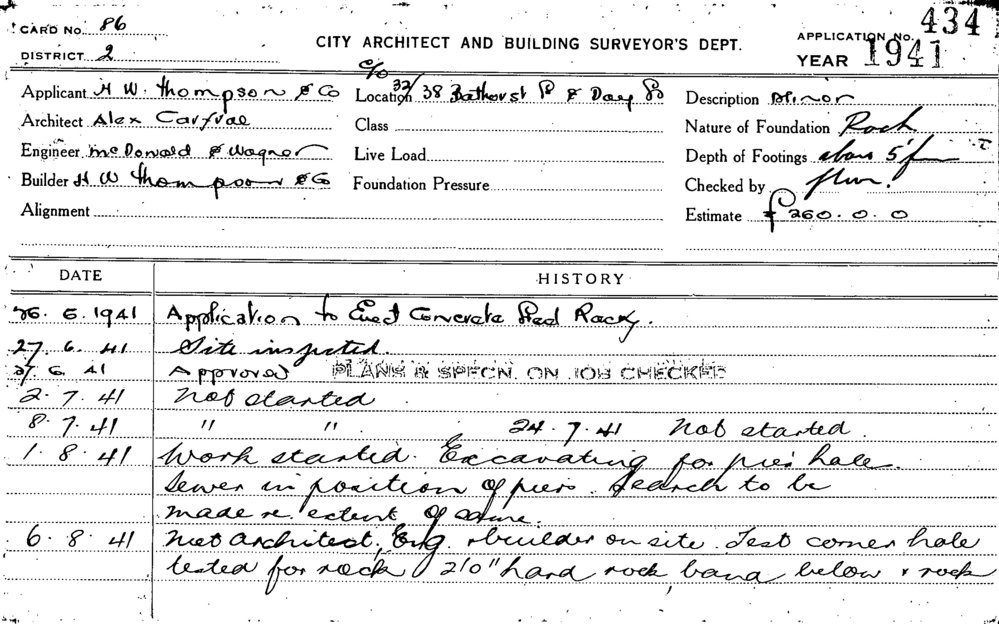 CARD No. 86
DISTRICT 2
CITY ARCHITECT AND BUILDING SURVEYOR'S DEPT.
APPLICATION No. 434
YEAR 1941
Applicant H W. Thompson & Co
Architect Alex Carfrae
Engineer McDonald & Wagner
Builder H W Thompson & Co
Alignment
c/o
Location 32/38 Bathurst St & Day St
Class
Live Load
Foundation Pressure
Description Minor
Nature of Foundation Rock
Depth of Footings 5'
Checked by
Estimate £260.0.0
DATE HISTORY
26. 6. 1941 Application to Erect Concrete
27. 6. 41 Site inspected.
27. 6. 41 Approved PLANS & SPECN. ON JOB CHECKED
2. 7. 41 Not started
8. 7. 41 " " 24. 7. 41 Not started.
1. 8. 41 Work started. Excavating for pier hole.
Sewer in position of piers. Search to be
made re. extent of same.
6. 8. 41 Met architect, Eng. & builder on site. Test corner hole
tested for rock 2'0" hard rock band below & rock